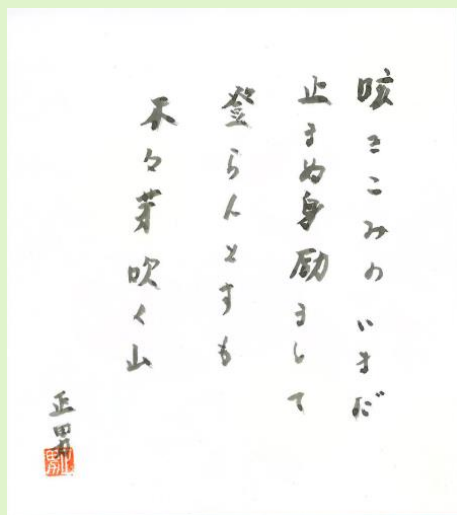 咳きこみのいまだ
止まぬ身励まして
登らんとすも
木々芽吹く山
正男